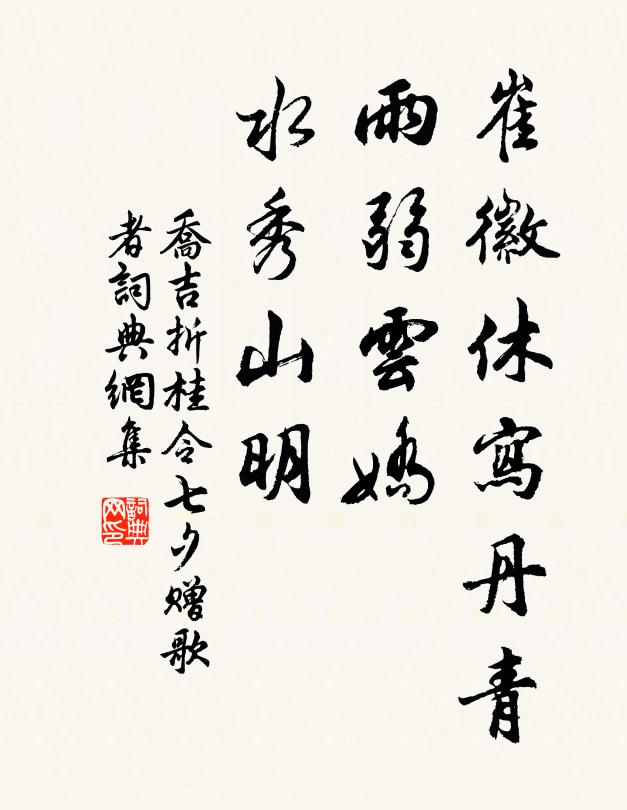 崔徽休寫丹青
雨弱雲嬌
水秀山明
喬吉折桂令七夕贈歌
者詞典網集
詞典网印